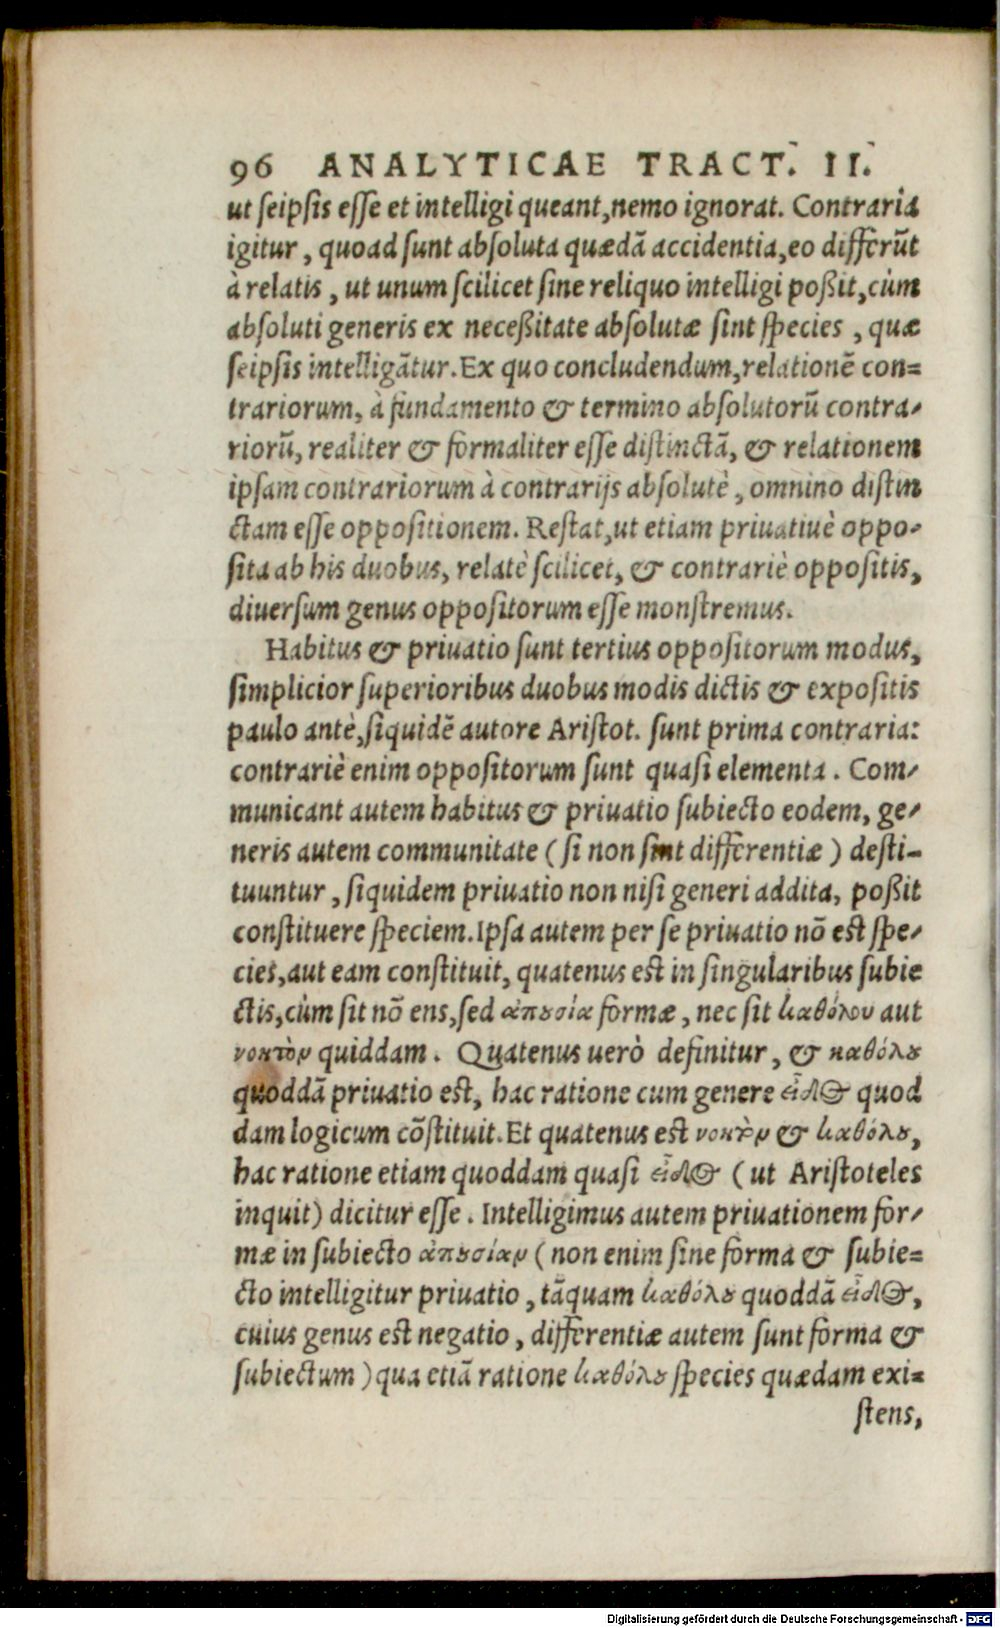 96 ANALYTICAE TRACT. II.
ut seipsis esse et intelligi queant, nemo ignorat. Contraria
igitur, quoad sunt absoluta quædã accidentia, eo differũt
à relatis, ut unum scilicet sine reliquo intelligi poßit, cùm
absoluti generis ex neceßitate absolutæ sint species, quæ
seipsis intelligãtur. Ex quo concludendum, relationẽ con=
trariorum, à fundamento & termino absolutorũ contra-
riorũ, realiter & formaliter esse distinctã, & relationem
ipsam contrariorum à contrarijs absolutè, omnino distin
ctam esse oppositionem. Restat, ut etiam priuatiuè oppo-
sita ab his duobus, relatè scilicet, & contrariè oppositis,
diuersum genus oppositorum esse monstremus.
Habitus & priuatio sunt tertius oppositorum modus,
simplicior superioribus duobus modis dictis & expositis
paulo antè, siquidẽ autore Aristot. sunt prima contraria:
contrariè enim oppositorum sunt quasi elementa. Com-
municant autem habitus & priuatio subiecto eodem, ge-
neris autem communitate (si non sint differentiæ) desti-
tuuntur, siquidem priuatio non nisi generi addita, poßit
constituere speciem. Ipsa autem per se priuatio nõ est spe-
cies, aut eam constituit, quatenus est in singularibus subie
ctis, cùm sit nõ ens, sed ἀπουσία formæ, nec sit καθόλου aut
νοητὸν quiddam. Quatenus uerò definitur, & καθόλου
quoddã priuatio est, hac ratione cum genere εἶδος quod
dam logicum cõstituit. Et quatenus est νοητὸν & καθόλου,
hac ratione etiam quoddam quasi εἶδος (ut Aristoteles
inquit) dicitur esse. Intelligimus autem priuationem for-
mæ in subiecto ἀπουσίαν (non enim sine forma & subie=
cto intelligitur priuatio, tãquam καθόλου quoddã εἶδος,
cuius genus est negatio, differentiæ autem sunt forma &
subiectum) qua etiã ratione καθόλου species quædam exi=
stens,
Digitalisierung gefördert durch die Deutsche Forschungsgemeinschaft - DFG